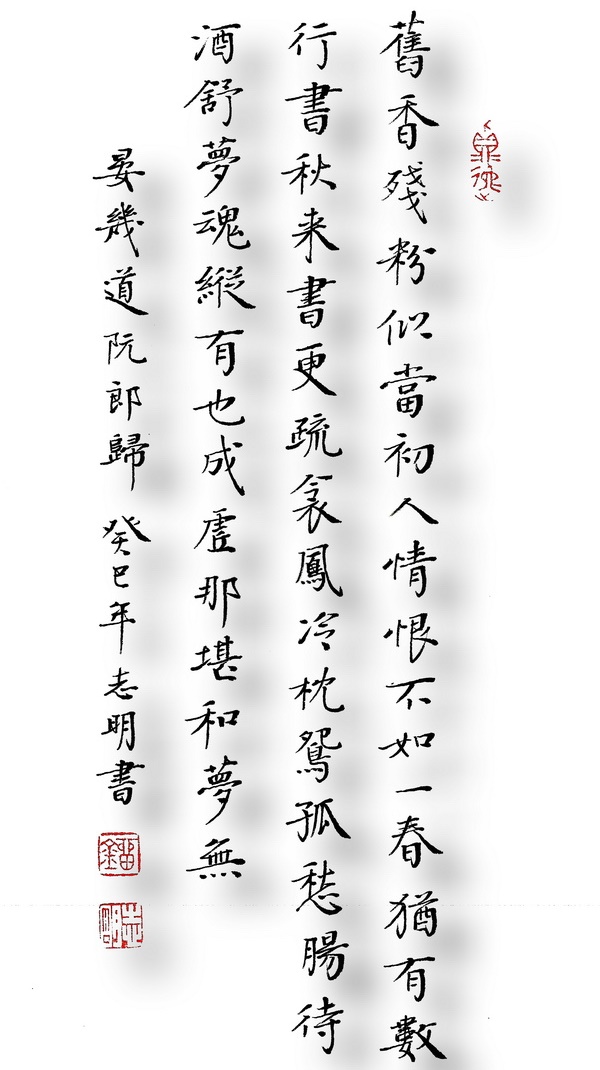 舊香殘粉似當初人情恨不如一春猶有數
行書秋来書更疏衾鳳冷枕鴛孤愁腸待
酒舒夢魂縱有也成虛那堪和夢無
晏幾道阮郎歸 癸巳年志明書
志明